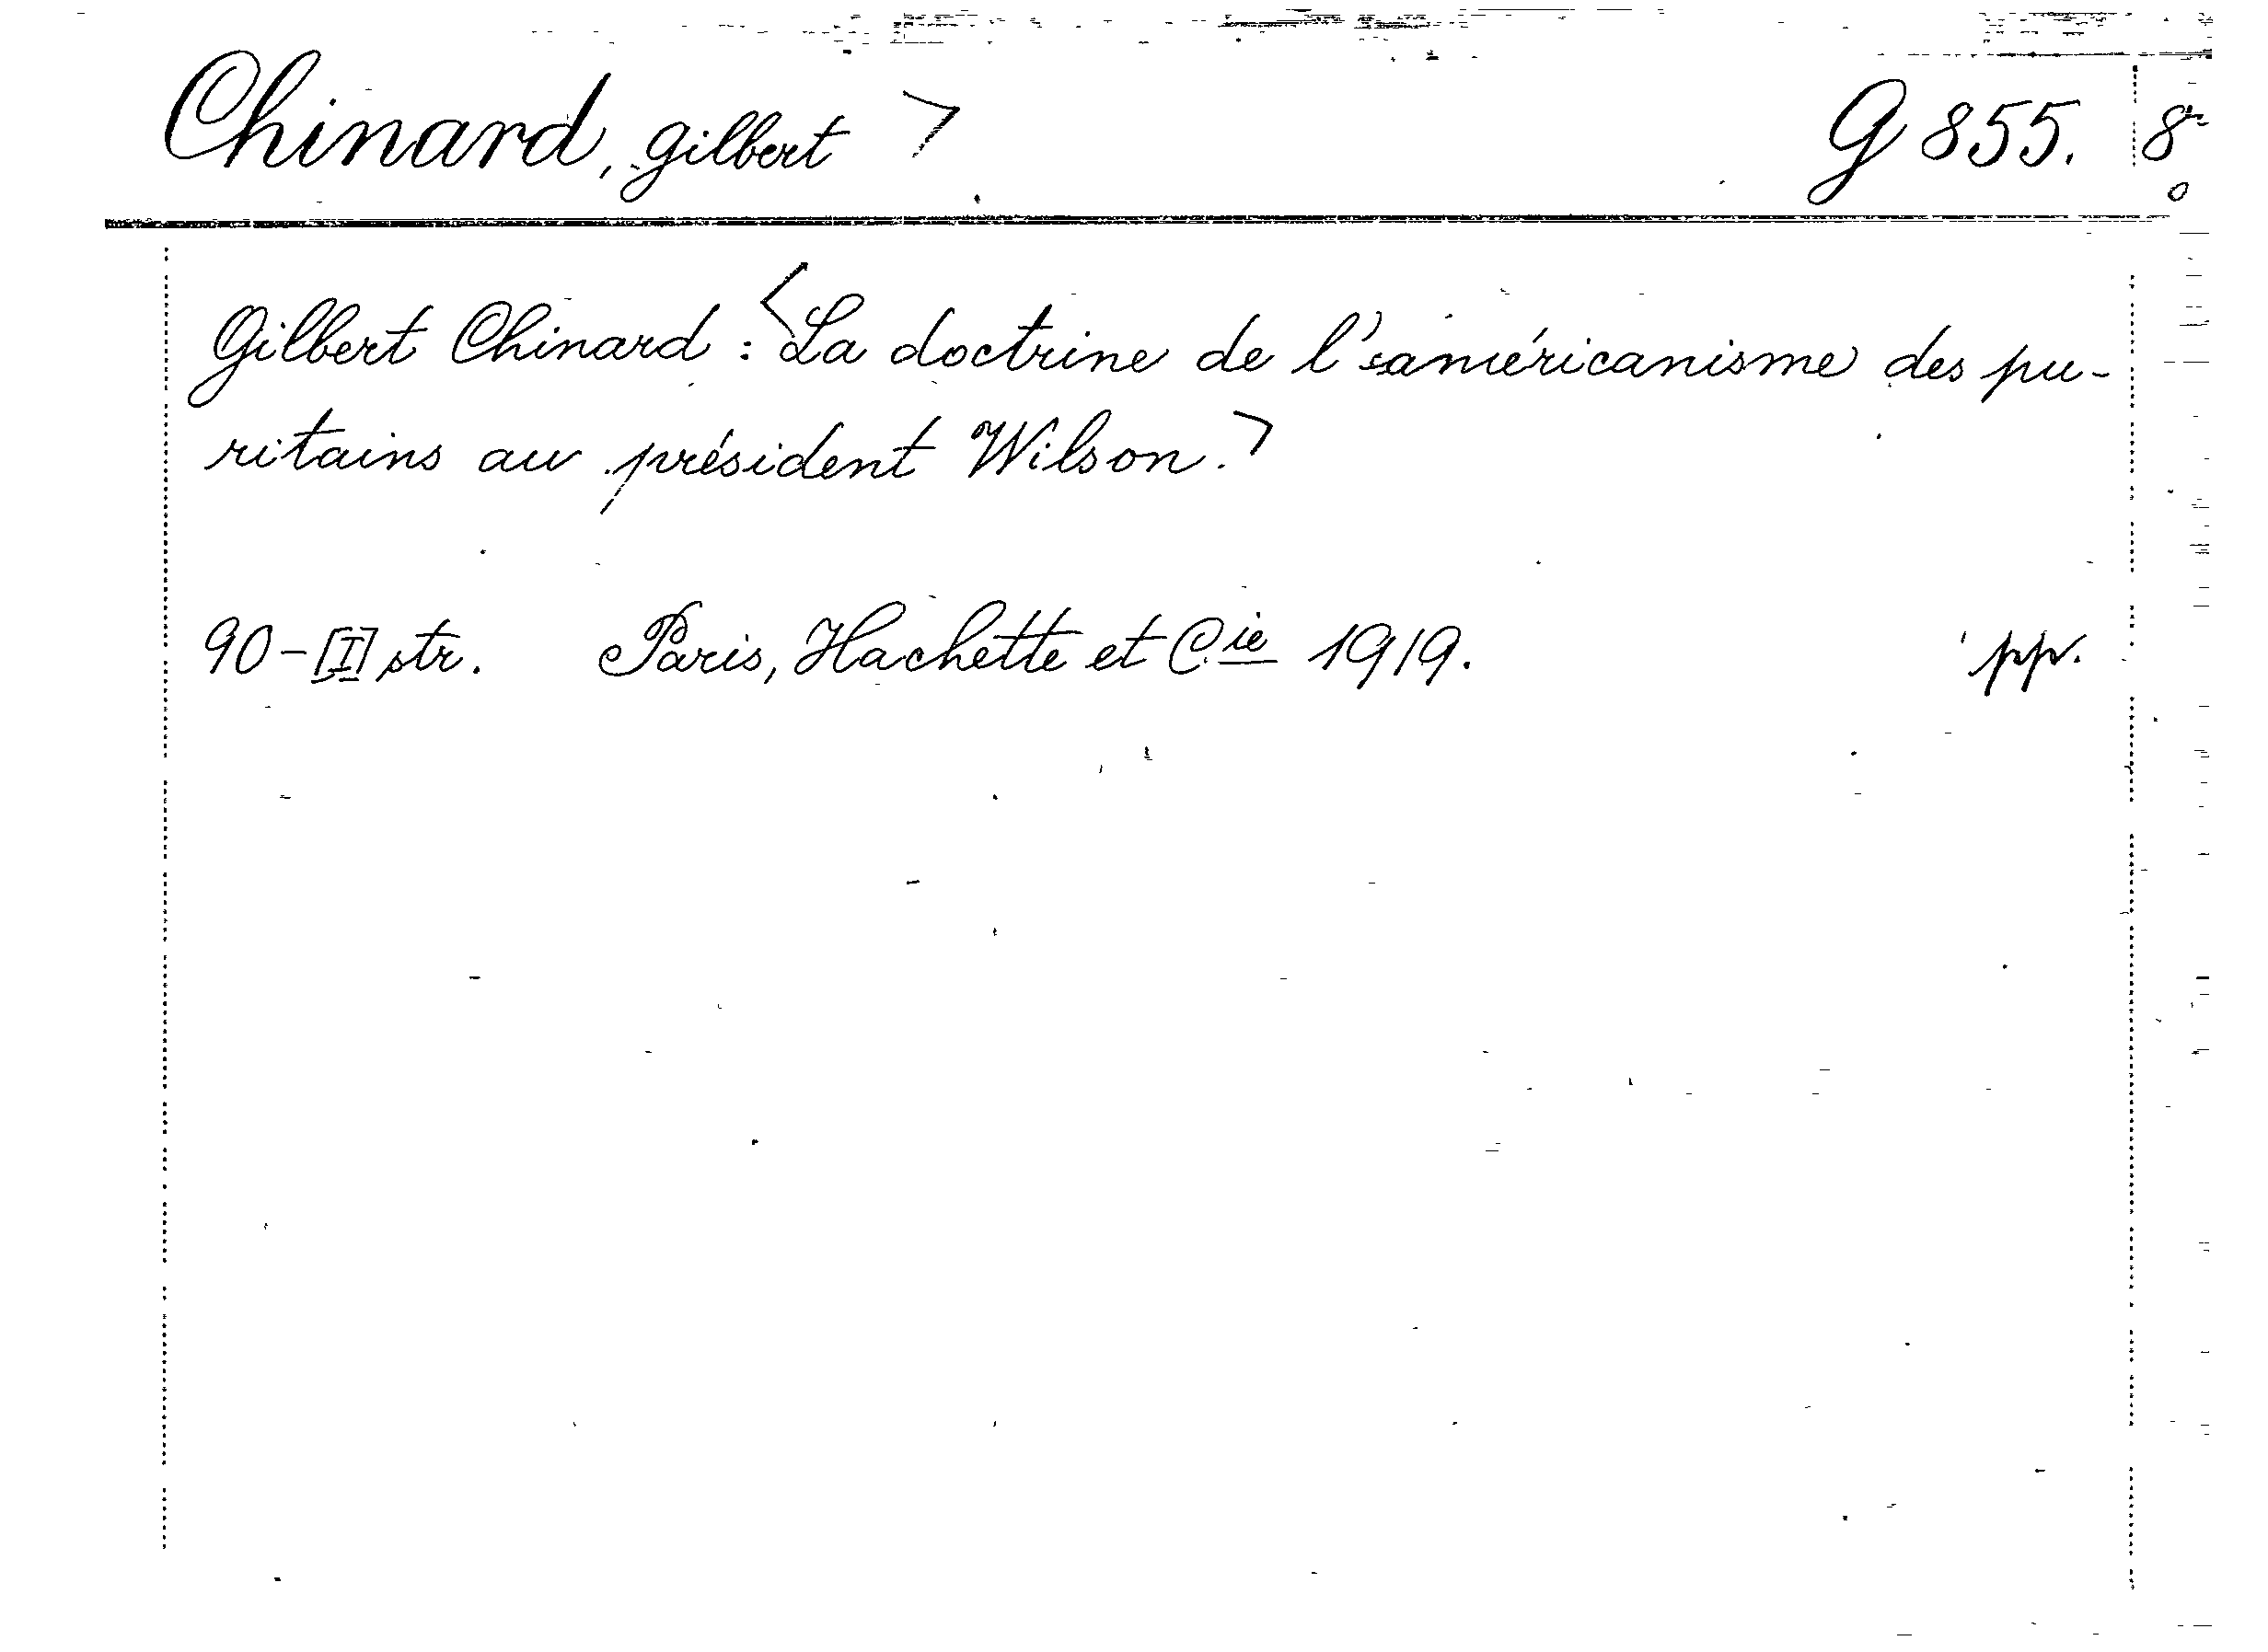 Chinard, Gilbert > G 855. 8°
Gilbert Chinard : <La doctrine de l'américanisme des pu-
ritains au président Wilson.>
90-[I] str. Paris, Hachette et Cie 1919. pp.